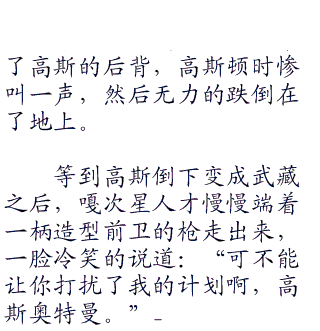 了高斯的后背，高斯顿时惨
叫一声，然后无力的跌倒在
了地上。
等到高斯倒下变成武藏
之后，嘎次星人才慢慢端着
一柄造型前卫的枪走出来，
一脸冷笑的说道：“可不能
让你打扰了我的计划啊，高
斯奥特曼。”